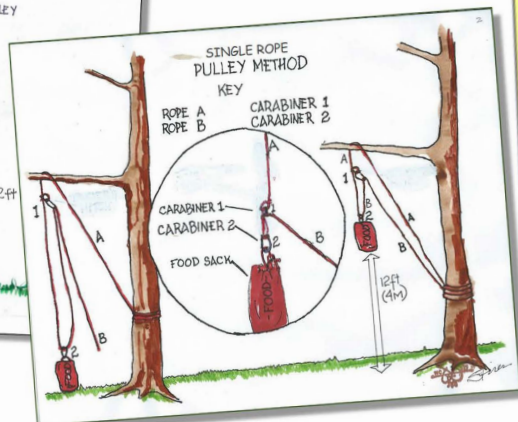 LEY
2ft
SINGLE ROPE
PULLEY METHOD
KEY
ROPE A
ROPE B
CARABINER 1
CARABINER 2
1
A
B
2
A
CARABINER 1
1
CARABINER 2
2
B
FOOD SACK
FOOD
A
1
B
2
FOOD
A
B
12ft
(4M)
2